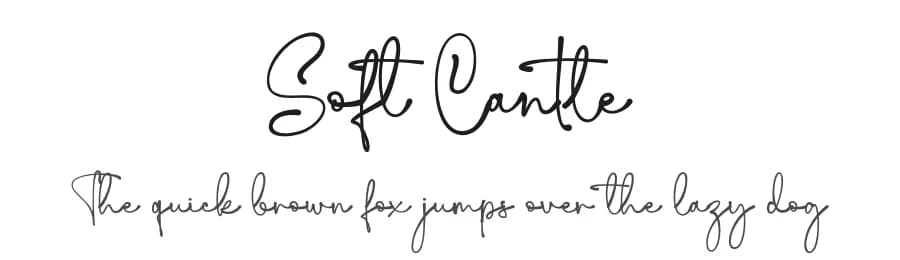 Soft Cantle
The quick brown fox jumps over the lazy dog